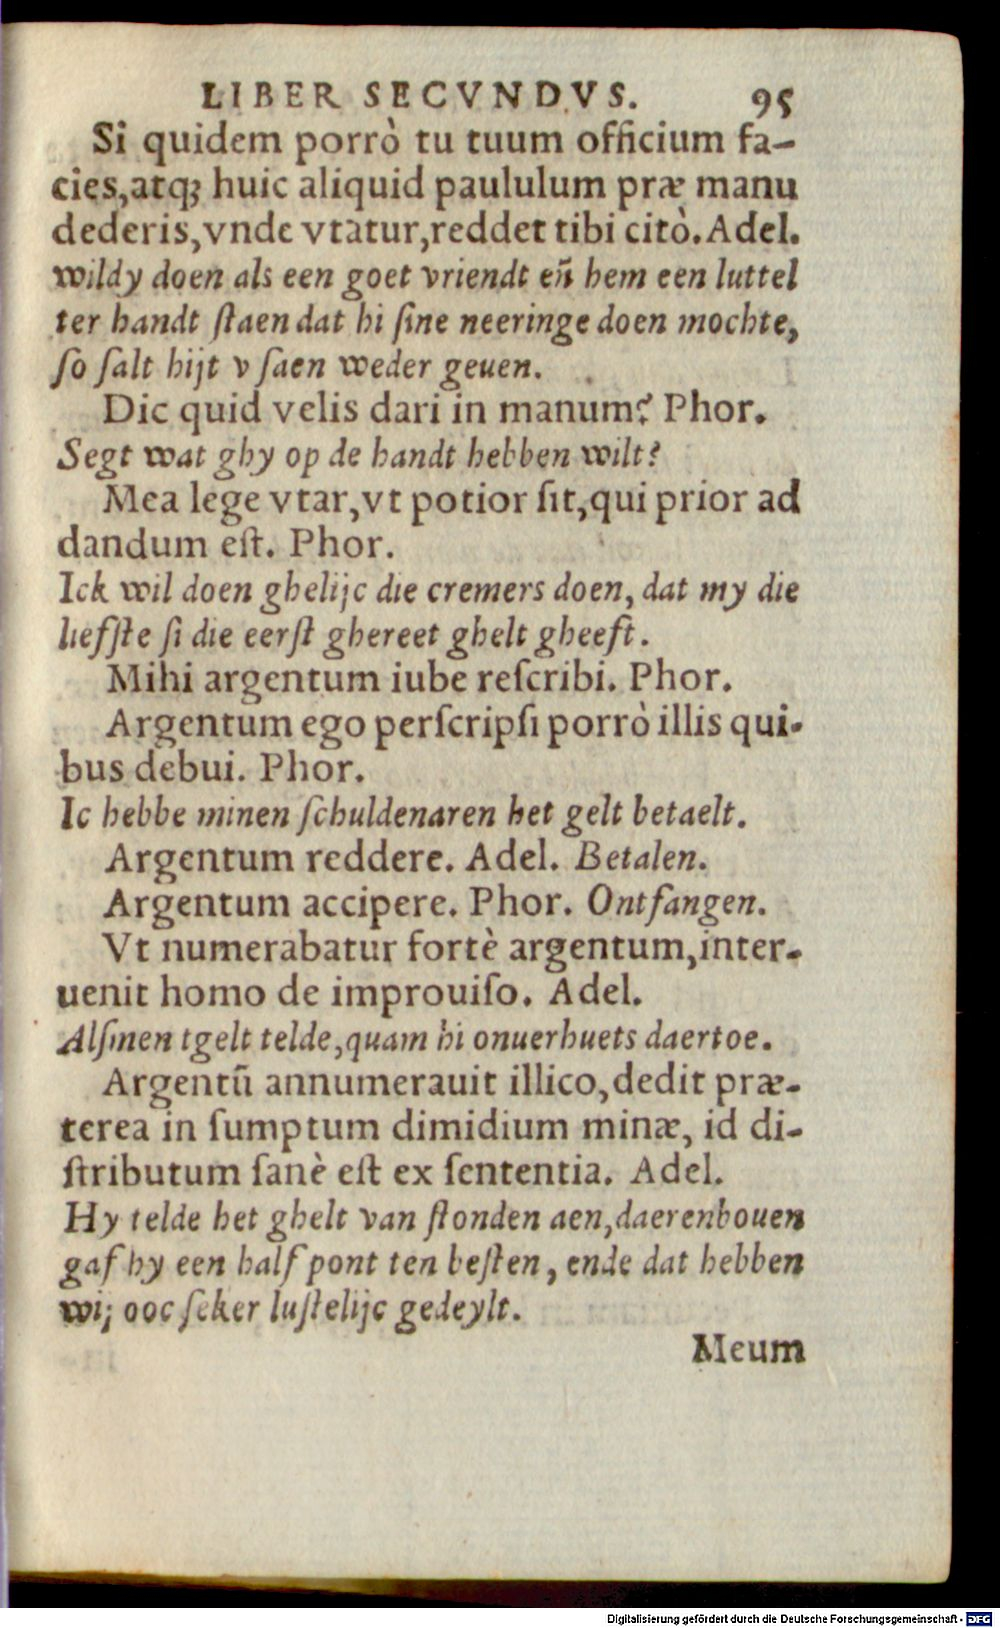 LIBER SECVNDVS. 95
Si quidem porrò tu tuum officium fa-
cies,atq; huic aliquid paululum præ manu
dederis,vnde vtatur,reddet tibi citò.Adel.
wildy doen als een goet vriendt en̄ hem een luttel
ter handt ſtaen dat hi ſine neeringe doen mochte,
ſo ſalt hijt v ſaen weder geuen.
Dic quid velis dari in manum? Phor.
Segt wat ghy op de handt hebben wilt?
Mea lege vtar,vt potior ſit,qui prior ad
dandum eſt. Phor.
Ick wil doen ghelijc die cremers doen, dat my die
liefſte ſi die eerſt ghereet ghelt gheeft.
Mihi argentum iube reſcribi. Phor.
Argentum ego perſcripſi porrò illis qui-
bus debui. Phor.
Ic hebbe minen ſchuldenaren het gelt betaelt.
Argentum reddere. Adel. Betalen.
Argentum accipere. Phor. Ontfangen.
Vt numerabatur fortè argentum,inter-
uenit homo de improuiſo. Adel.
Alſmen tgelt telde,quam hi onuerhuets daertoe.
Argentū annumerauit illico,dedit præ-
terea in ſumptum dimidium minæ, id di-
ſtributum ſanè eſt ex ſententia. Adel.
Hy telde het ghelt van ſtonden aen,daerenbouen
gaf hy een half pont ten beſten, ende dat hebben
wij ooc ſeker luſtelijc gedeylt.
Meum
Digitalisierung gefördert durch die Deutsche Forschungsgemeinschaft - DFG